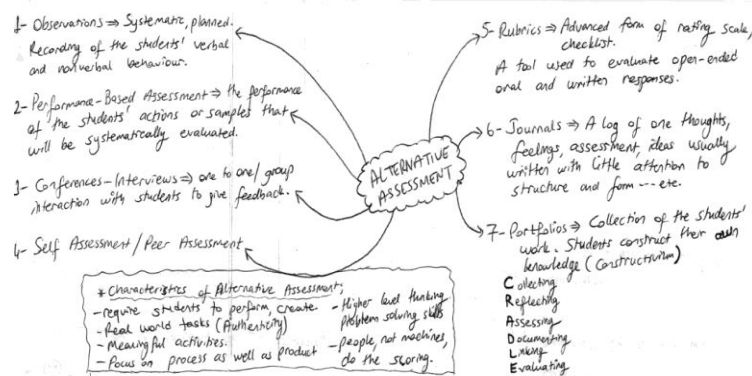 1- Observations ⇒ Systematic, planned.
Recording of the students' verbal
and nonverbal behaviour.
2- Performance-Based Assessment ⇒ the performance
of the students' actions or samples that
will be systematically evaluated.
3- Conferences-Interviews ⇒ one to one/group
interaction with students to give feedback.
4- Self Assessment/Peer Assessment
ALTERNATIVE
ASSESSMENT
5- Rubrics ⇒ Advanced form of rating scale,
checklist.
A tool used to evaluate open-ended
oral and written responses.
6- Journals ⇒ A log of one thoughts,
feelings, assessment, ideas usually
written with little attention to
structure and form --- etc.
7- Portfolios ⇒ Collection of the students'
work. Students construct their own
knowledge (Constructivism)
Collecting
Reflecting
Assessing
Documenting
Linking
Evaluating
* Characteristics of Alternative Assessment;
- require students to perform, create.
- Real world tasks (Authenticity)
- Meaningful activities.
- Focus on process as well as product
- Higher level thinking
problem solving skills
- people, not machines,
do the scoring.